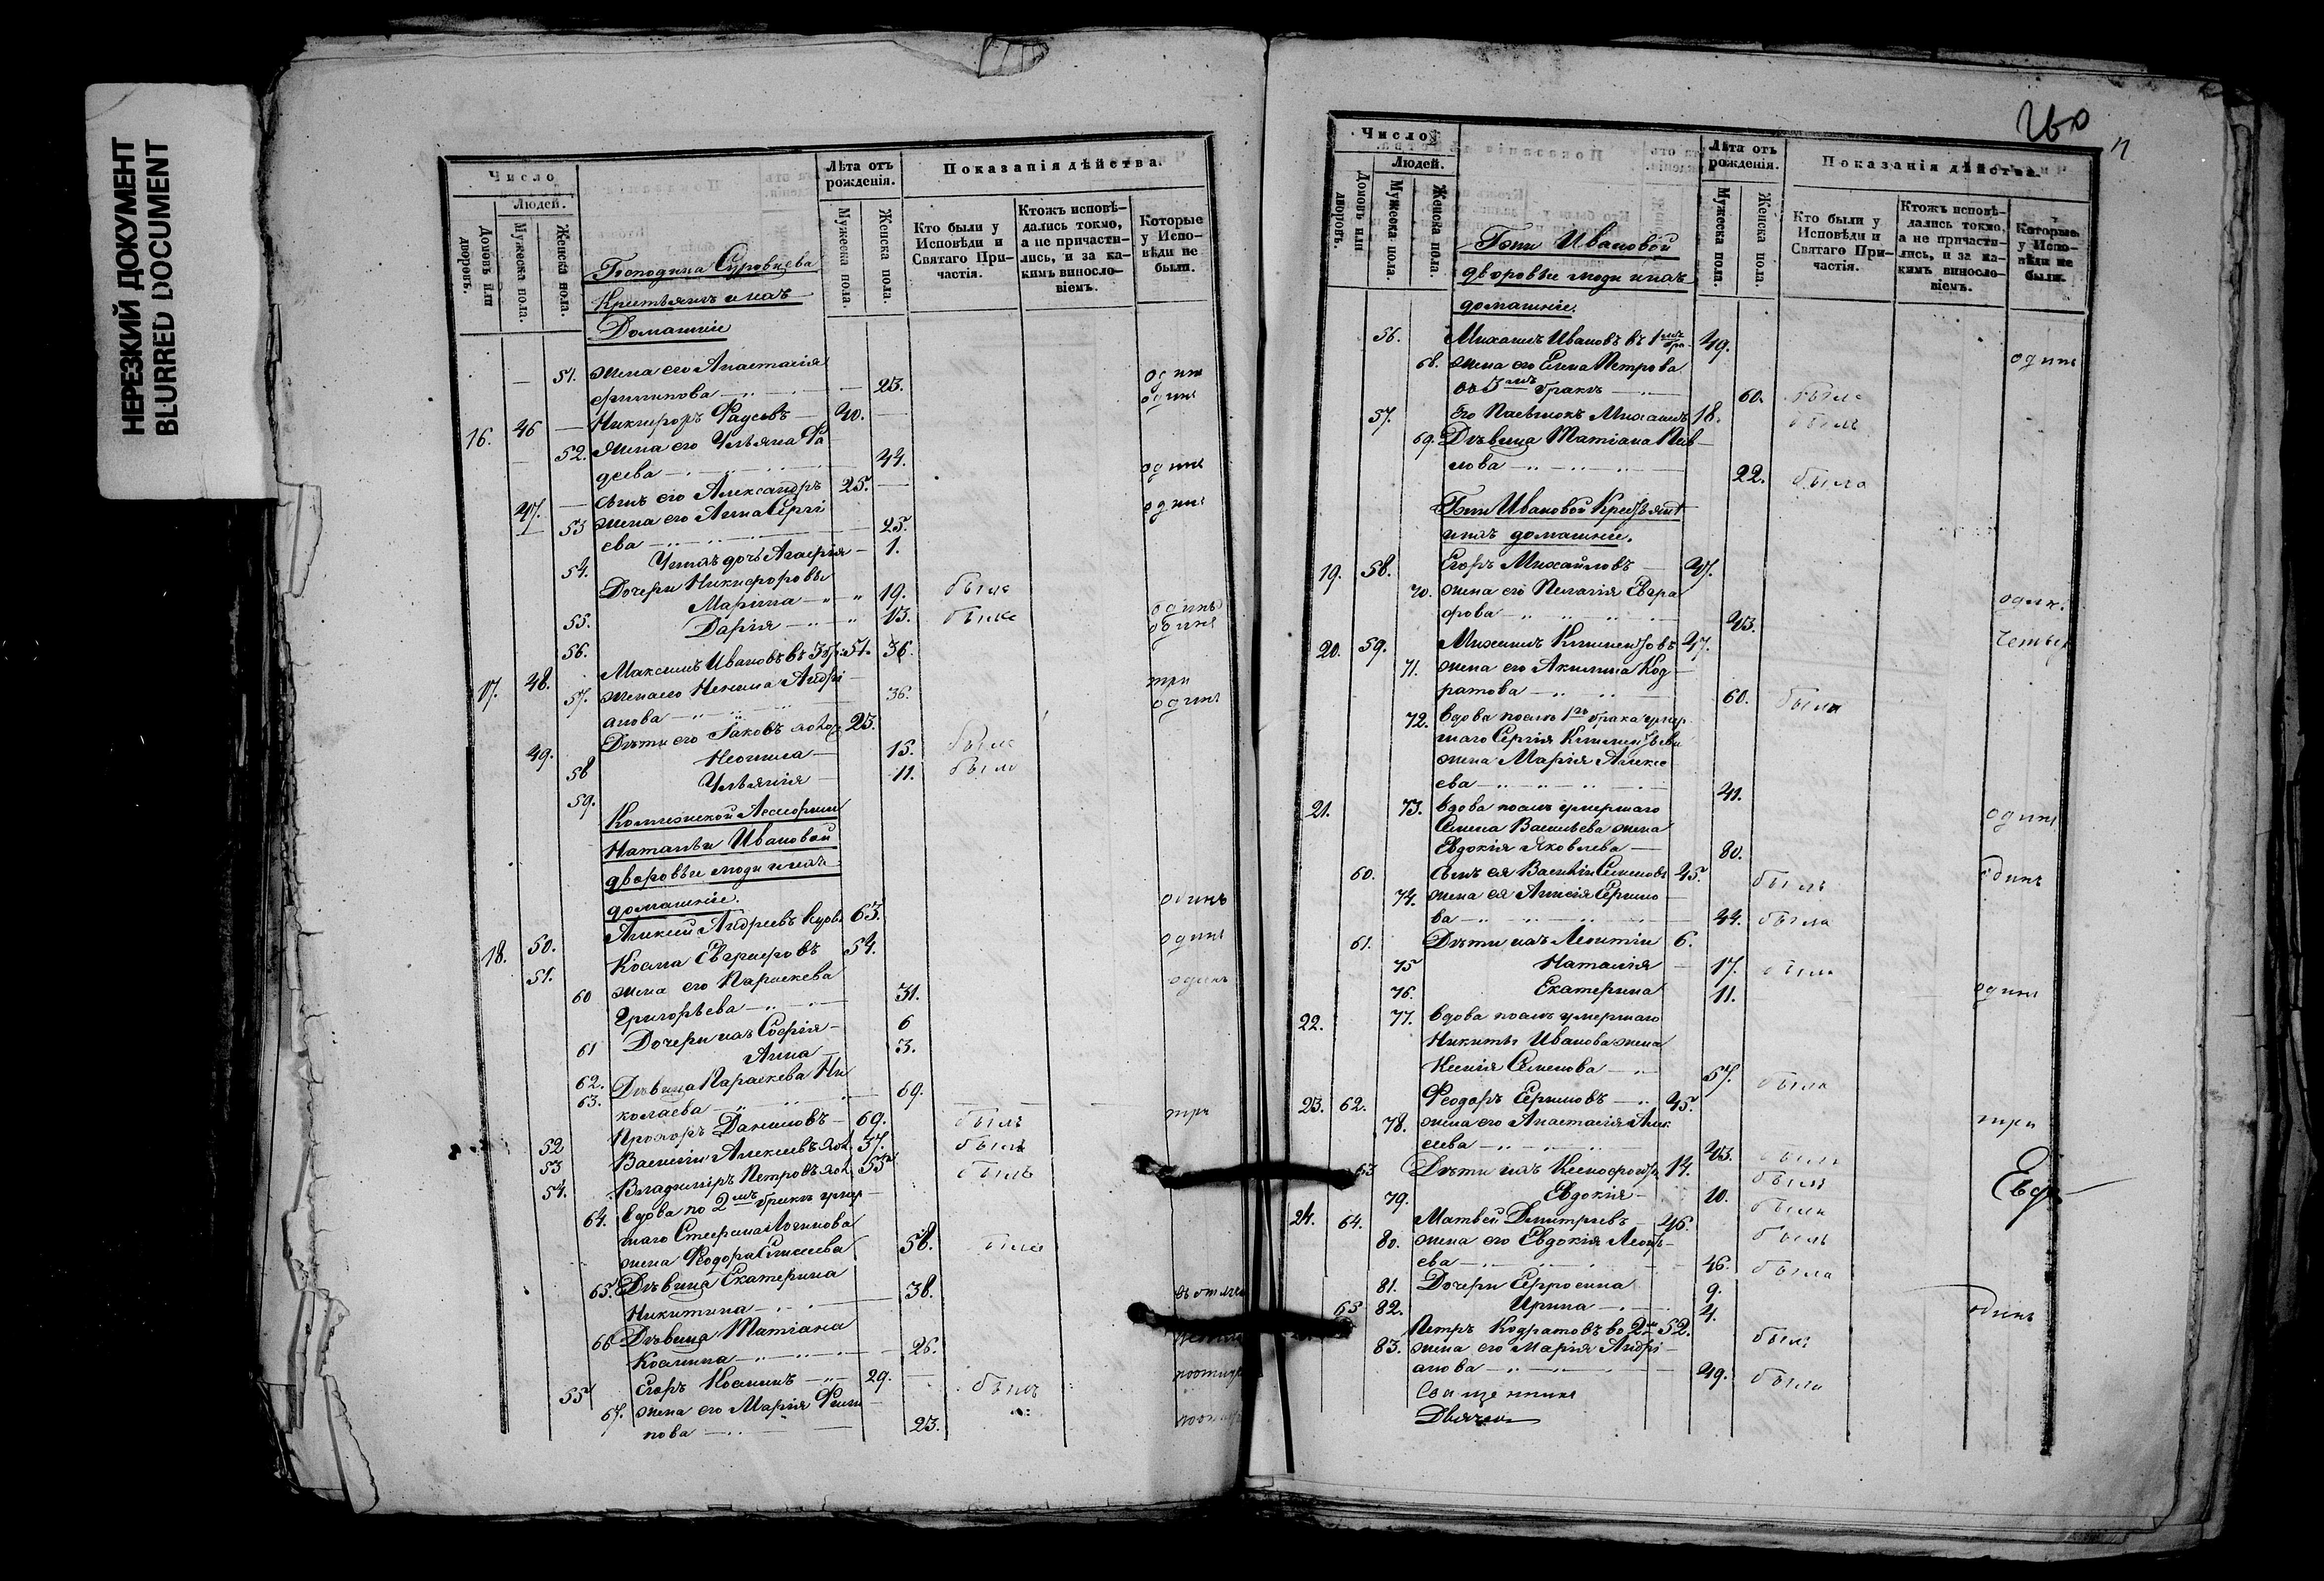 НЕРЕЗКИЙ ДОКУМЕНТ
BLURRED DOCUMENT
Число
Людей.
Домовъ или дворовъ.
Мужеска пола.
Женска пола.
Лѣта отъ рожденія.
Мужеска пола.
Женска пола.
Показанія дѣйства.
Кто были у Исповѣди и Святаго Причастія.
Ктожъ исповѣдались токмо, а не причастились, и за какимъ винословіемъ.
Которые у Исповѣди не были.
Господина Суровцева
Крестьянъ и ихъ
Домашніе
51. жена его Анастасія
Филипова 23. одинъ
16. 46 Никифоръ Фадеевъ 40. одинъ
52. жена его Ульяна Фа
деева 44.
47. сынъ его Александръ 25. одинъ
53 жена его Анна Сергі
ева 25. одинъ
54. У нихъ дочь Агафія 1.
Дочери Никифоровы
55. Марина 19. была
56. Дарія 13. была
17. 48. Максимъ Ивановъ въ 3 бр. 51. 36. одинъ
57. жена его Ненила Андрі
анова 36. три
49. Дѣти его Іаковъ холос 23. одинъ
58 Неонила 15. была
59. Ульянія 11. была
Колежской Асесорши
Натальи Ивановой
дворовые люди и ихъ
домашніе.
18. 50. Алексей Андреевъ вдовъ 63. одинъ
51. Косма Евграфовъ 54. одинъ
60 жена его Параскева
Григорьева 31. одинъ
61 Дочери ихъ Софія 6
62. Анна 3.
63. Дѣвица Параскева Ни
колаева 69. три
52 Прохоръ Даниловъ 69. былъ
53 Василій Алексѣевъ хол. 37. былъ
54. Владиміръ Петровъ хол. 33 былъ
64. вдова по 2мъ бракѣ умер
шаго Стефана Логинова
жена Федора Елисеева 58. была
65. Дѣвица Екатерина
Никитина 38.
66 Дѣвица Татіана
Космина 26.
55 Егоръ Косминъ 29. былъ
67. жена его Марія Фили
пова 23.
260
Число
Людей.
Домовъ или дворовъ.
Мужеска пола.
Женска пола.
Лѣта отъ рожденія.
Мужеска пола.
Женска пола.
Показанія дѣйства.
Кто были у Исповѣди и Святаго Причастія.
Ктожъ исповѣдались токмо, а не причастились, и за какимъ винословіемъ.
Которые у Исповѣди не были.
Гжи Ивановой
дворовые люди и ихъ
домашніе.
56. Михаилъ Ивановъ въ 1мъ бра. 49. одинъ
68. жена его Елена Петрова
въ 3мъ бракѣ 60. была
57. Его Пасынокъ Михаилъ 18. былъ
69. Дѣвица Татіана Пав
лова 22. была
Гжи Ивановой Крестьяне
и ихъ домашніе.
19. 58. Егоръ Михайловъ 47.
70. жена его Пелагія Евгра
фова 43. один.
20. 59. Михаилъ Климентовъ 47. четыр
71. жена его Акилина Код
ратова 60. была
72. вдова послѣ 1го брака умер
шаго Сергія Климентьева
жена Марія Алексе
ева 41.
21. 73. вдова послѣ умершаго
Семена Васильева жена
Евдокія Яковлева 80. одинъ
60. Сынъ ея Василій Семеновъ 45. былъ одинъ
74. жена ея Анисія Ермило
ва 44. была
61. Дѣти ихъ Леонтій 6.
75 Наталія 17. была
76. Екатерина 11. одинъ
22. 77. вдова послѣ умершаго
Никиты Иванова жена
Ксенія Семенова 57. была
23. 62. Феодоръ Ермиловъ 45.
78. жена его Анастасія Алек
сеева 43. была три
63 Дѣти ихъ Ксенофонтъ 14. былъ
79. Евдокія 10. была
24. 64. Матвей Дмитріевъ 46. былъ
80. жена его Евдокія Леонть
ева 46. была
81. Дочери Ефросинія 9.
82. Ирина 4.
65 Петръ Кодратовъ во 2мъ 52. былъ одинъ
83. жена его Марія Андрі
анова 49. была
Священникъ
Дьячекъ